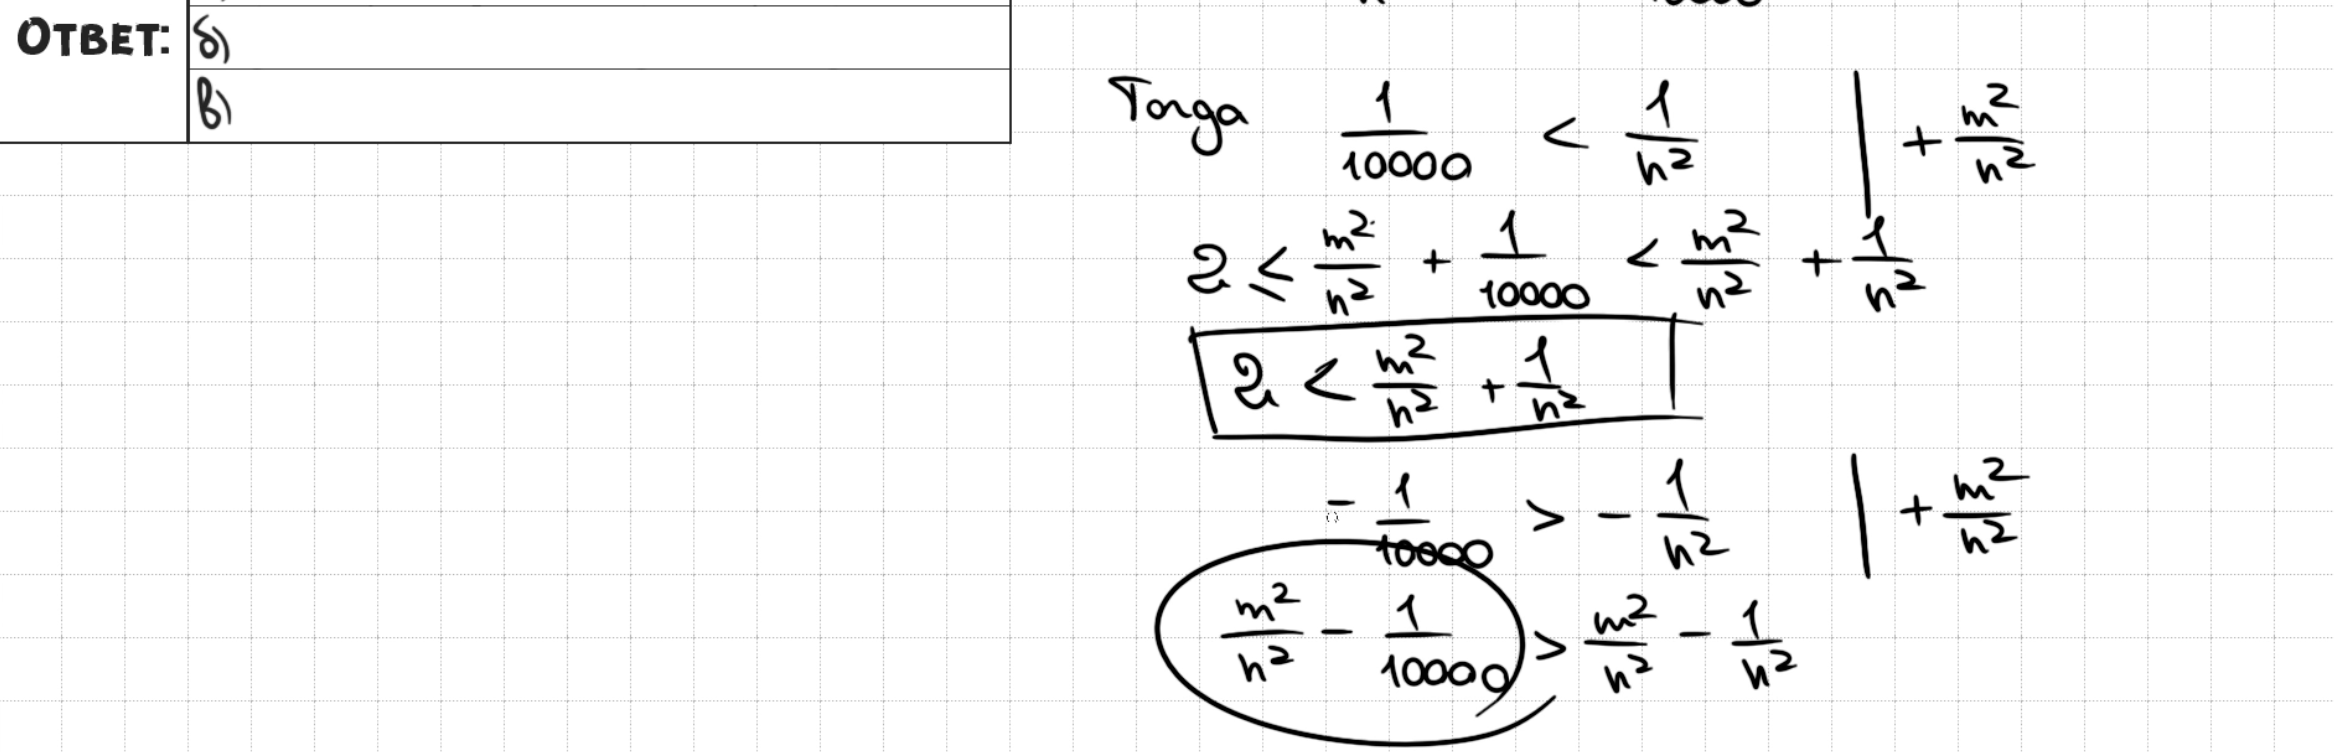 ОТВЕТ:
б)
в)
Тогда 1/10000 < 1/n² | + m²/n²
2 ≤ m²/n² + 1/10000 < m²/n² + 1/n²
2 < m²/n² + 1/n²
- 1/10000 > - 1/n² | + m²/n²
m²/n² - 1/10000 > m²/n² - 1/n²